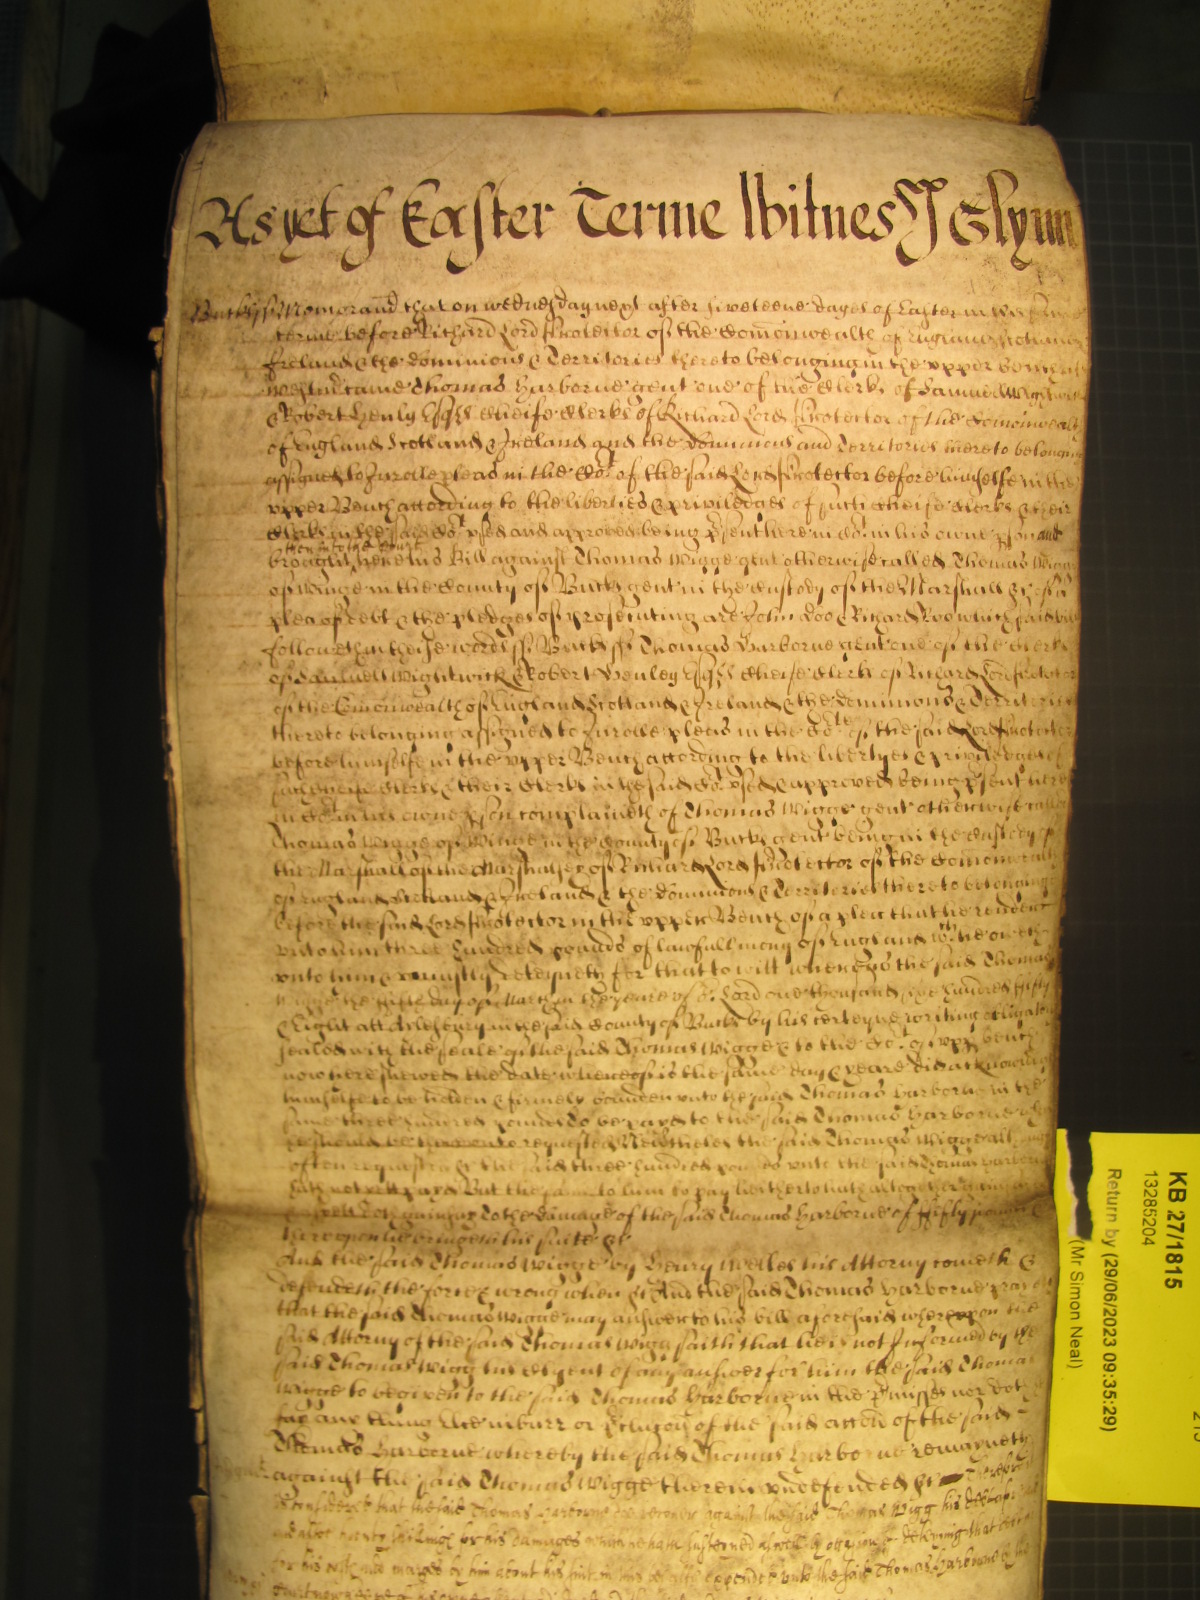 As yet of Easter Terme Witnes J Glynn
Bucks ss Memorand that on wednesday next after fiveteene dayes of Easter in this same
terme before Richard Lord Protector of the Comonwealth of England Scotland
Ireland & the dominions & Territories thereto belonging in the upper bench
came Thomas Harborne gent one of the Clerks of Samuel Wightwick
& Robert Henly Esqrs cheife Clerks of Richard Lord Protector of the Comonwealth
of England Scotland & Ireland and the dominions and Territories thereto belonging
assigned to Inrolle pleas in the Cort of the said Lord Protector before himselfe in the
upper Bench according to the liberties & priviledges of such cheife Clerks & their
Clerks in the said Cort used and approved being psent here in Cort in his owne pson and
then into the Court
brought here his Bill against Thomas Wigge gent otherwise called Thomas Wigge
of Winge in the County of Bucks gent in the custody of the Marshall &c of a
plea of debt & the pledges of prosecuting are John Doo & Richard Roo which said bill
followeth in these words ss Bucks ss Thomas Harborne gent one of the Clerks
of Samuell Wightwick & Robert Henley Esqrs cheife Clerks of Richard Lord Protector
of the Comonwealth of England Scotland & Ireland & the dominions & Territories
thereto belonging assigned to Inrolle pleas in the Cort of the said Lord Protector
before himselfe in the upper Bench according to the libertyes & priviledges of
such cheife Clerks & their Clerks in the said Cort used & approved being psent here
in Cort in his owne pson complaineth of Thomas Wigge gent otherwise called
Thomas Wigge of Winge in the County of Bucks gent being in the custody of
the Marshall of the Marshalsea of Richard Lord Protector of the Comonwealth
of England Scotland & Ireland & the dominions & Territories thereto belonging
before the said Lord Protector in the upper Bench of a plea that he render
unto him three hundred pounds of lawfull mony of England wch he oweth
unto him & uniustly deteyneth for that to witt whereas the said Thomas
Wigge the fifth day of March in the yeare of or Lord one thousand six hundred fifty
& Eight att Alesbury in the said County of Bucks by his certeyne writing obligatory
sealed with the seale of the said Thomas Wigge & to the Cort of upp bench
now here shewed the date whereof is the same day & yeare did acknowledge
himselfe to be holden & firmely bounden unto the said Thomas Harborne in the
same three hundred pounds to be payd to the said Thomas Harborne when
he should be thereunto requested Nevertheles the said Thomas Wigge although
often requested &c the said three hundred pounds unto the said Thomas Harborne
hath not yett payd But the same to him to pay hitherto hath altogether
doth gainsay To the damage of the said Thomas Harborne of fifty pounds &
thereupon he bringeth his suite &c
And the said Thomas Wigge by Henry Welles his Attorny cometh &
defendeth the force & wrong when &c And the said Thomas Harborne prayeth
that the said Thomas Wigge may answer to his bill aforesaid whereupon the
said Attorny of the said Thomas Wigge saith that he is not Informed by the
said Thomas Wigg his Clyent of any answer for him the said Thomas
Wigge to be given to the said Thomas Harborne in the pmisses nor doth
say any thing else in barr or pclusion of the said accon of the said
Thomas Harborne whereby the said Thomas Harborne remayneth
against the said Thomas Wigge therein undefended &c Therefore
it is considered that the said Thomas Harborne doe recover against the said Thomas Wigg his debt aforesaid
and also twenty shillings for his damages which he hath susteyned aswell by occasion of deteyning that debt as
for his costs and charges by him about his suit in this behalfe expended unto the said Thomas Harborne